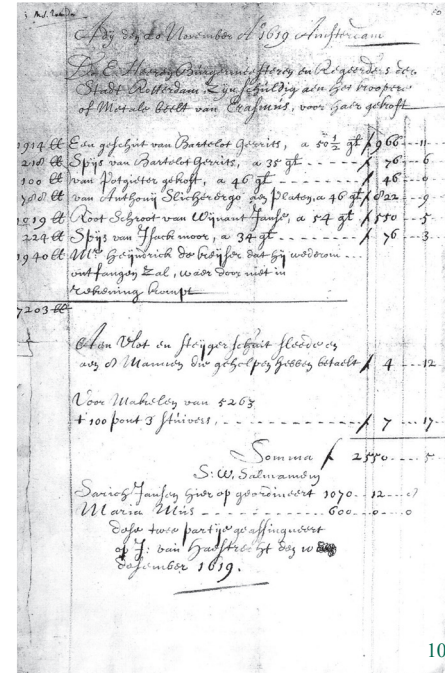 Adij den 20 November Aº 1619 Amsterdam
De E. Heeren Burgermeesteren en Regeerders der
Stadt Rotterdam, Zijn schuldig aen het koopere
of Metale beelt van Erasmus, voor haer gekoft
1914 ℔ Een geschut van Bartelot Gerrits, a 50½ gt ƒ 966--11
218 ℔ Spijs van Bartelot Gerrits, a 35 gt ƒ 76--6
100 ℔ van Potgieter gekoft, a 46 gt ƒ 46--0
788 ℔ van Anthonij Slicherbergo aen Platen, a 46 gt ƒ 822--9
1019 ℔ Root Schroot van Wijnant Janse, a 54 gt ƒ 550--5
224 ℔ Spijs van Isack moor, a 34 gt ƒ 76--3
1940 ℔ Mr Heijndrick de Keijser dat hij wederom
ontfangen Zal, waer door niet in
rekening kompt
7203 ℔
een Vlot en Steijger schuit sleede en
aen 8 Mannen die geholpen hebben betaelt ƒ 4--12
Voor Makelen van 5263
t 100 pont 3 stuivers ƒ 7--17
Somma ƒ 2550--5
S: W. Salmamen
Sarich Jansen hier op geordineert 1070--12--8
Maria Mus 600--0--0
dese twee partije geassingneert
op J: van Haestrecht den
desember 1619.
10